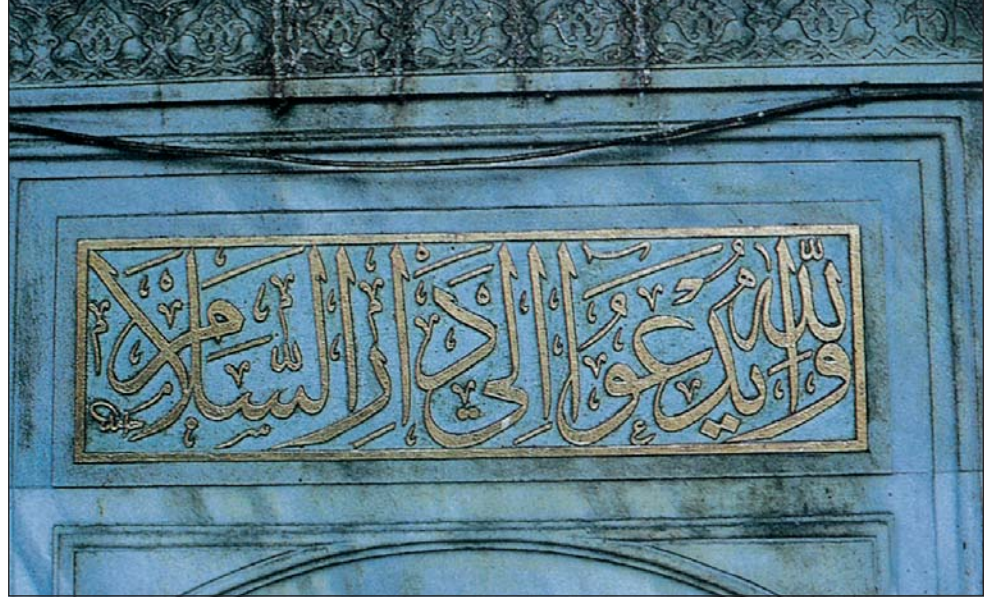 وَاللّٰهُ يَدْعُوا اِلٰى دَارِ السَّلَامِ